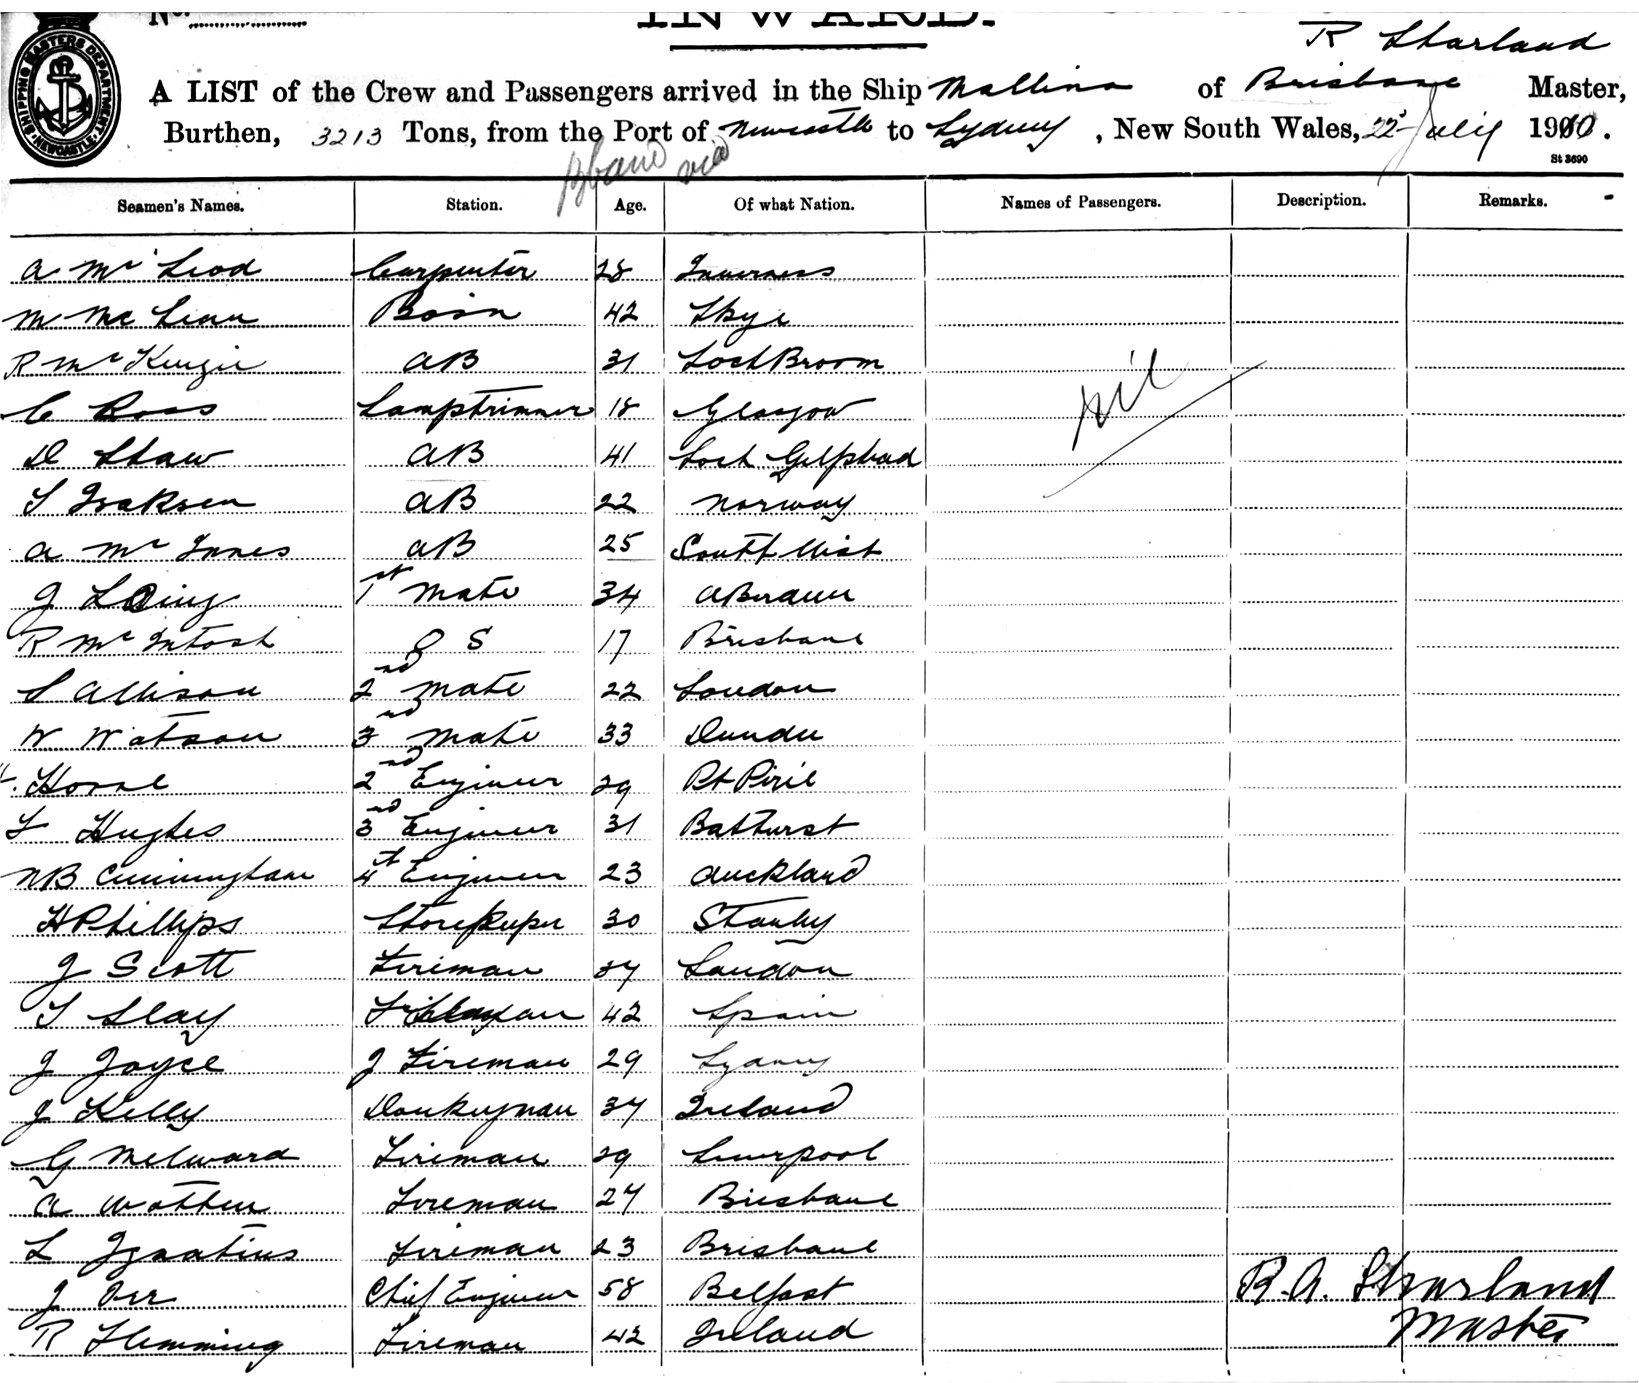 No.
INWARD.
SHIPPING MASTERS DEPARTMENT NEWCASTLE
R Sharland
A LIST of the Crew and Passengers arrived in the Ship Mallina of Brisbane Master,
Burthen, 3213 Tons, from the Port of Newcastle to Sydney, New South Wales, 22nd July 1910.
via
St 3690
Seamen's Names. Station. Age. Of what Nation. Names of Passengers. Description. Remarks.
A McLeod Carpenter 28 Inverness
M McLean Bosn 42 Skye
R McKenzie AB 31 Loch Broom
nil
C Ross Lamptrimmer 18 Glasgow
D Shaw AB 41 Loch Gilphead
S Isaksen AB 22 Norway
A McInnes AB 25 South Uist
J Laing 1st Mate 34 Aberdeen
R McIntosh O S 17 Brisbane
S Allison 2nd Mate 22 London
W Watson 3rd Mate 33 Dundee
Horne 2nd Engineer 29 Pt Pirie
F Hughes 3rd Engineer 31 Bathurst
NB Cunningham 4th Engineer 23 Auckland
H Phillips Storekeeper 30 Stanley
J Scott Fireman 37 London
S Slay 42 Spain
J Joyce Fireman 29 Sydney
J Kelly Donkeyman 37 Ireland
G Melward Fireman 29 Liverpool
A Watten Fireman 27 Brisbane
L Ignatius Fireman 23 Brisbane
J Orr Chief Engineer 58 Belfast
R. A. Sharland
R Flemming Fireman 42 Ireland
Master